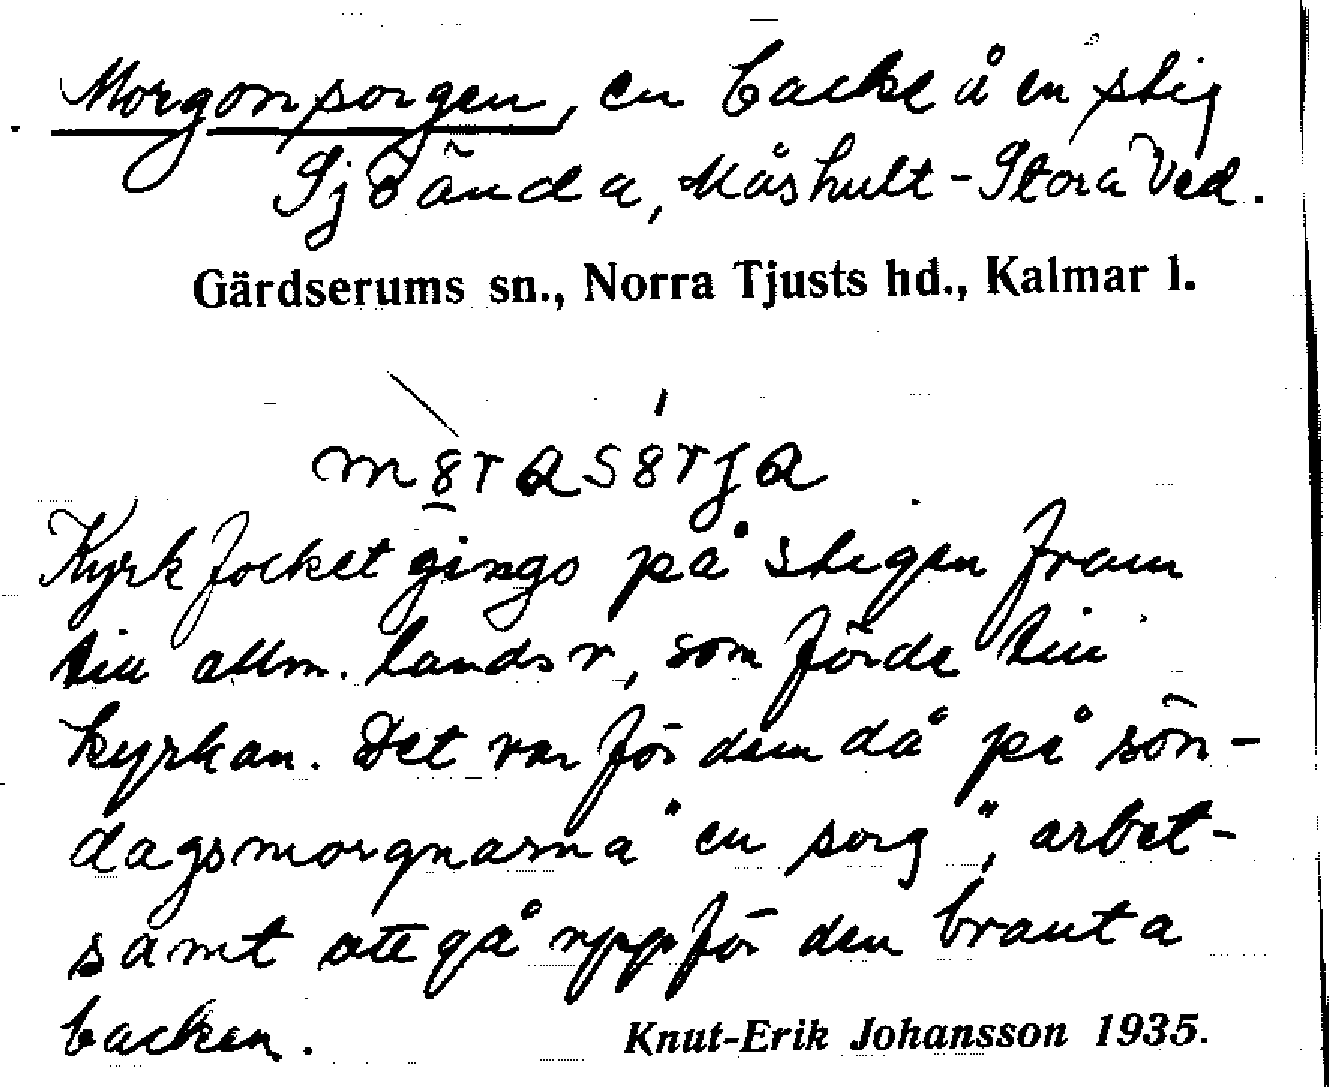 Morgonsorgen, en backe å en stig
Sjöända, Måshult - Stora Ved.
Gärdserums sn., Norra Tjusts hd., Kalmar l.
Kyrkfolket gingo på stigen fram
till allm. landsv, som förde till
kyrkan. Det var för dem då på sön-
dagsmorgnarna "en sorg", arbet-
samt att gå uppför den branta
backen.
Knut-Erik Johansson 1935.